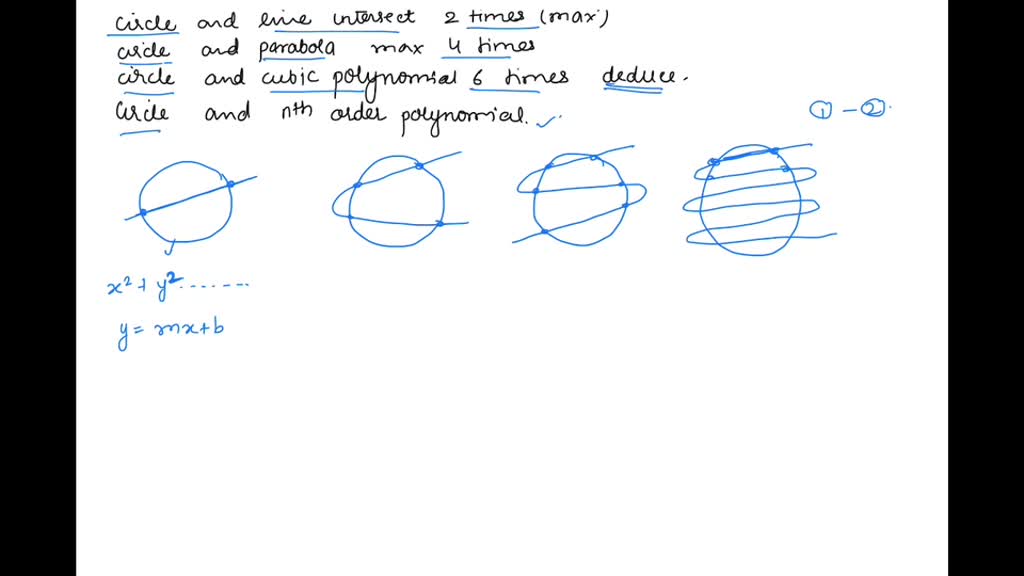 circle and line intersect 2 times (max)
circle and parabola max 4 times
circle and cubic polynomial 6 times deduce.
Circle and nth order polynomial. ✓
① - ②.
x² + y² .......
y = mx+b